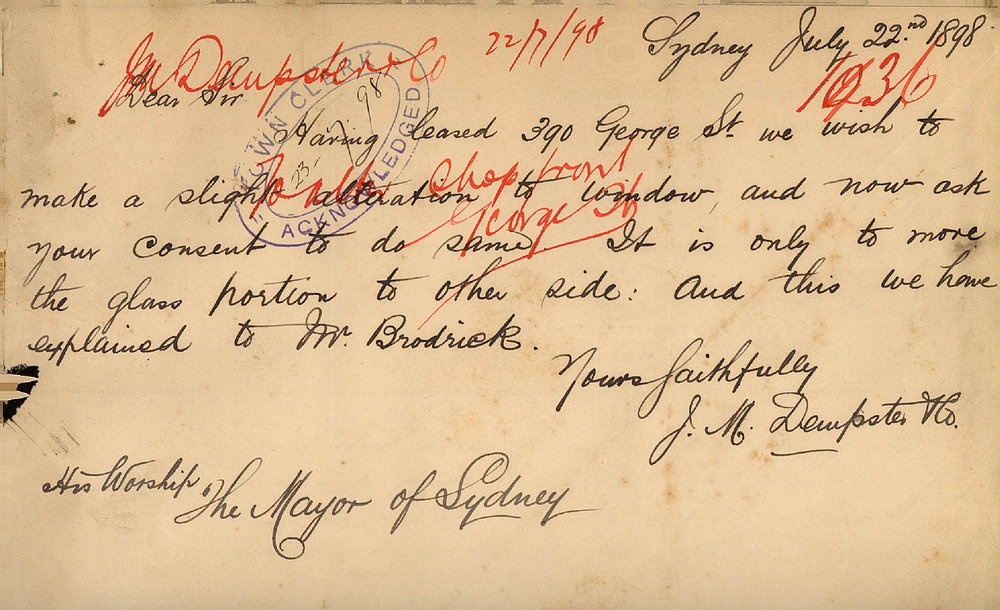 Sydney July 22nd 1898
JM Dempster & Co 22/7/98
1936
Dear Sir
TOWN CLERK
23 7 98
ACKNOWLEDGED
Having leased 390 George St. we wish to
make a slight alteration to window, and now ask
To alter shop front
George St
your consent to do same. It is only to move
the glass portion to other side: And this we have
explained to Mr. Brodrick.
Yours faithfully
J. M. Dempster & Co.
His Worship The Mayor of Sydney